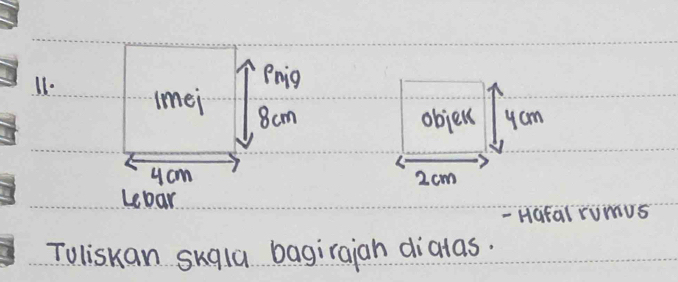 11.
Imej
Pnjg
8cm
4cm
Lebar
objek
4cm
2cm
- Hafal rumus
Tuliskan skala bagi rajah diatas.